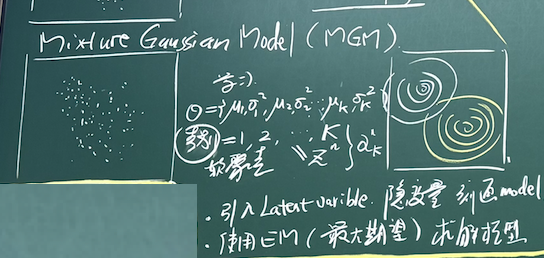 Mixture Gaussian Model (MGM)
Θ={μ₁,σ₁², μ₂σ₂², μK,σK²}
类别=1, 2, K
zⁿ
αK²
软
· 引入Latent varible 隐变量 刻画model
· 使用EM(最大期望)求解模型